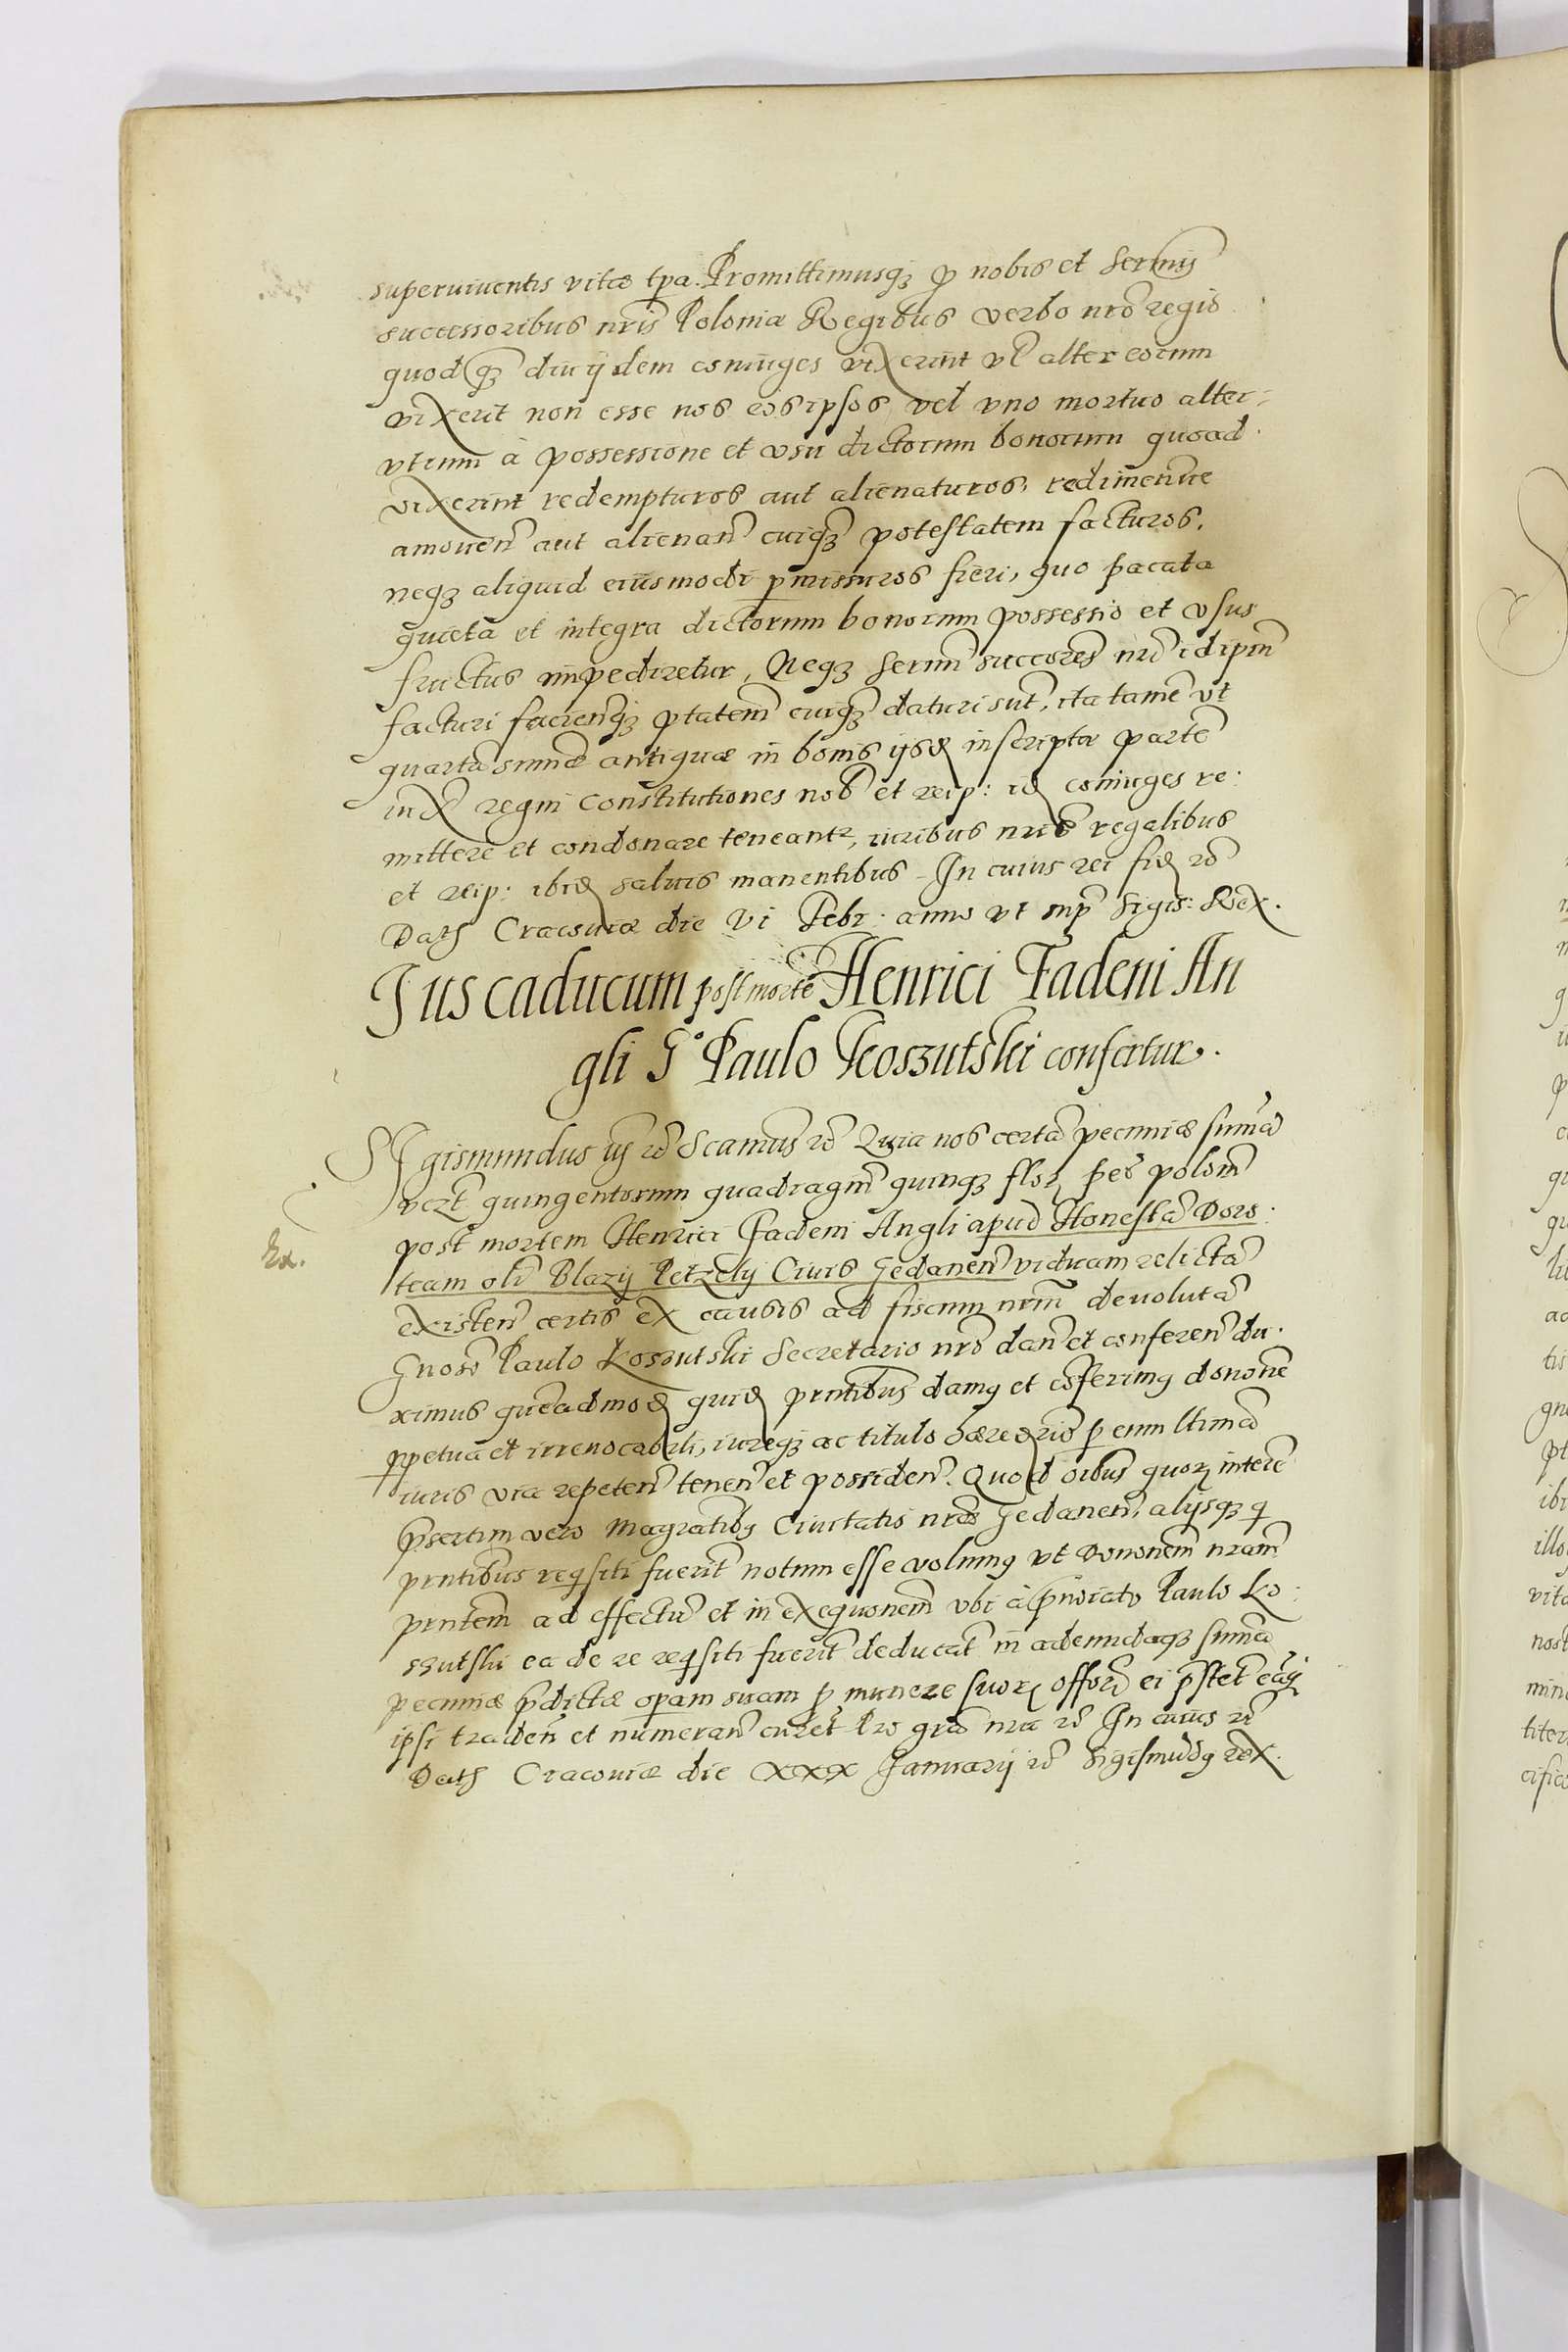 superviventis vitæ tpa. Promittimusq; p nobis et Sermis
successoribus nris Poloniæ Regibus verbo nro regio
quod q; diu ijdem coniuges vixerint vl alter eorum
vixerit non esse nos eos ipsos vel vno mortuo alter-
vtrum à possessione et vsu dictorum bonorum quoad
vixerint redempturos aut alienaturos, redimenve
amoven aut alienan cuiq; potestatem facturos,
neq; aliquid eiusmodi pmissuros fieri, quo pacata
quieta et integra dictorum bonorum possessio et vsus
fructus impediretur, Neq; Sermi succores nri idipm
facturi facienq; ptatem cuiq; daturi sut, ita tame vt
quarta summæ antiquæ in bonis ijsd inscriptæ parte
iux regni constitutiones nob et reip: id coniuges re:
mittere et condonare teneantr, iuribus nris regalibus
et reip: ibid salvis manentibus - In cuius rei fid rc
Dats Cracoviæ die Vi Febr: anno vt sup Sigis: Rex.
Jus caducum post morte Henrici Fadeni An
gli Go Paulo Koszutski confertur.
SJgismundus iij rc Scamus rc Quia nos certa pecuniæ suma
vezt quingentorum quadragin quinq; flor pec polon
post mortem Henrici Fadeni Angli apud Honesta Doro:
Ex.
team oli Blazij Petzelij Civis Gedanen viduam relicta
existen certis ex causis ad fiscum nrm devoluta
Gnoso Paulo Koszutski Secretario nro dan et conferen du:
ximus queadmod quid pntibus damus et coferimus donone
ppetua et irrevocabili, iureq; ac titulo hæredrio p eum ltima
iuris via repeten tenen et possiden. Quod oibus quor intere
psertim vero Magratibus Civitatis nræ Gedanen, alijsq; qi
pntibus reqsiti fuerit notum esse volumus vt Dononem nram
pntem ad effectu et in exequonem vbi à pnoiato Paulo Ko:
szutski ea de re reqsiti fuerit deducat in adeundaq; suma
pecuniæ pdictæ opam suam p munere suor offor ei pstet eaq;
ipsi traden et numeran curet pro gra nra rc In cuius re
Dats Cracoviæ die xxx Januarij rc Sigismudus rex.